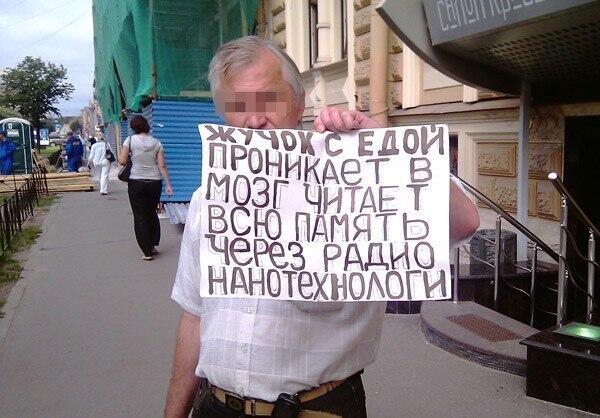 ЖУЧОК С ЕДОЙ
ПРОНИКАЕТ В
МОЗГ ЧИТАЕТ
ВСЮ ПАМЯТЬ
ЧЕРЕЗ РАДИО
НАНОТЕХНОЛОГИ